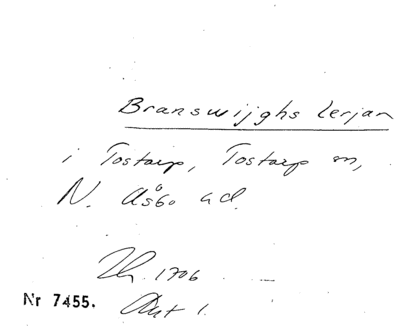 Branswijghs Lerjan
i Tostarp, Tostarp sn,
N. Åsbo hd.
1706
Nr 7455. Akt 1.